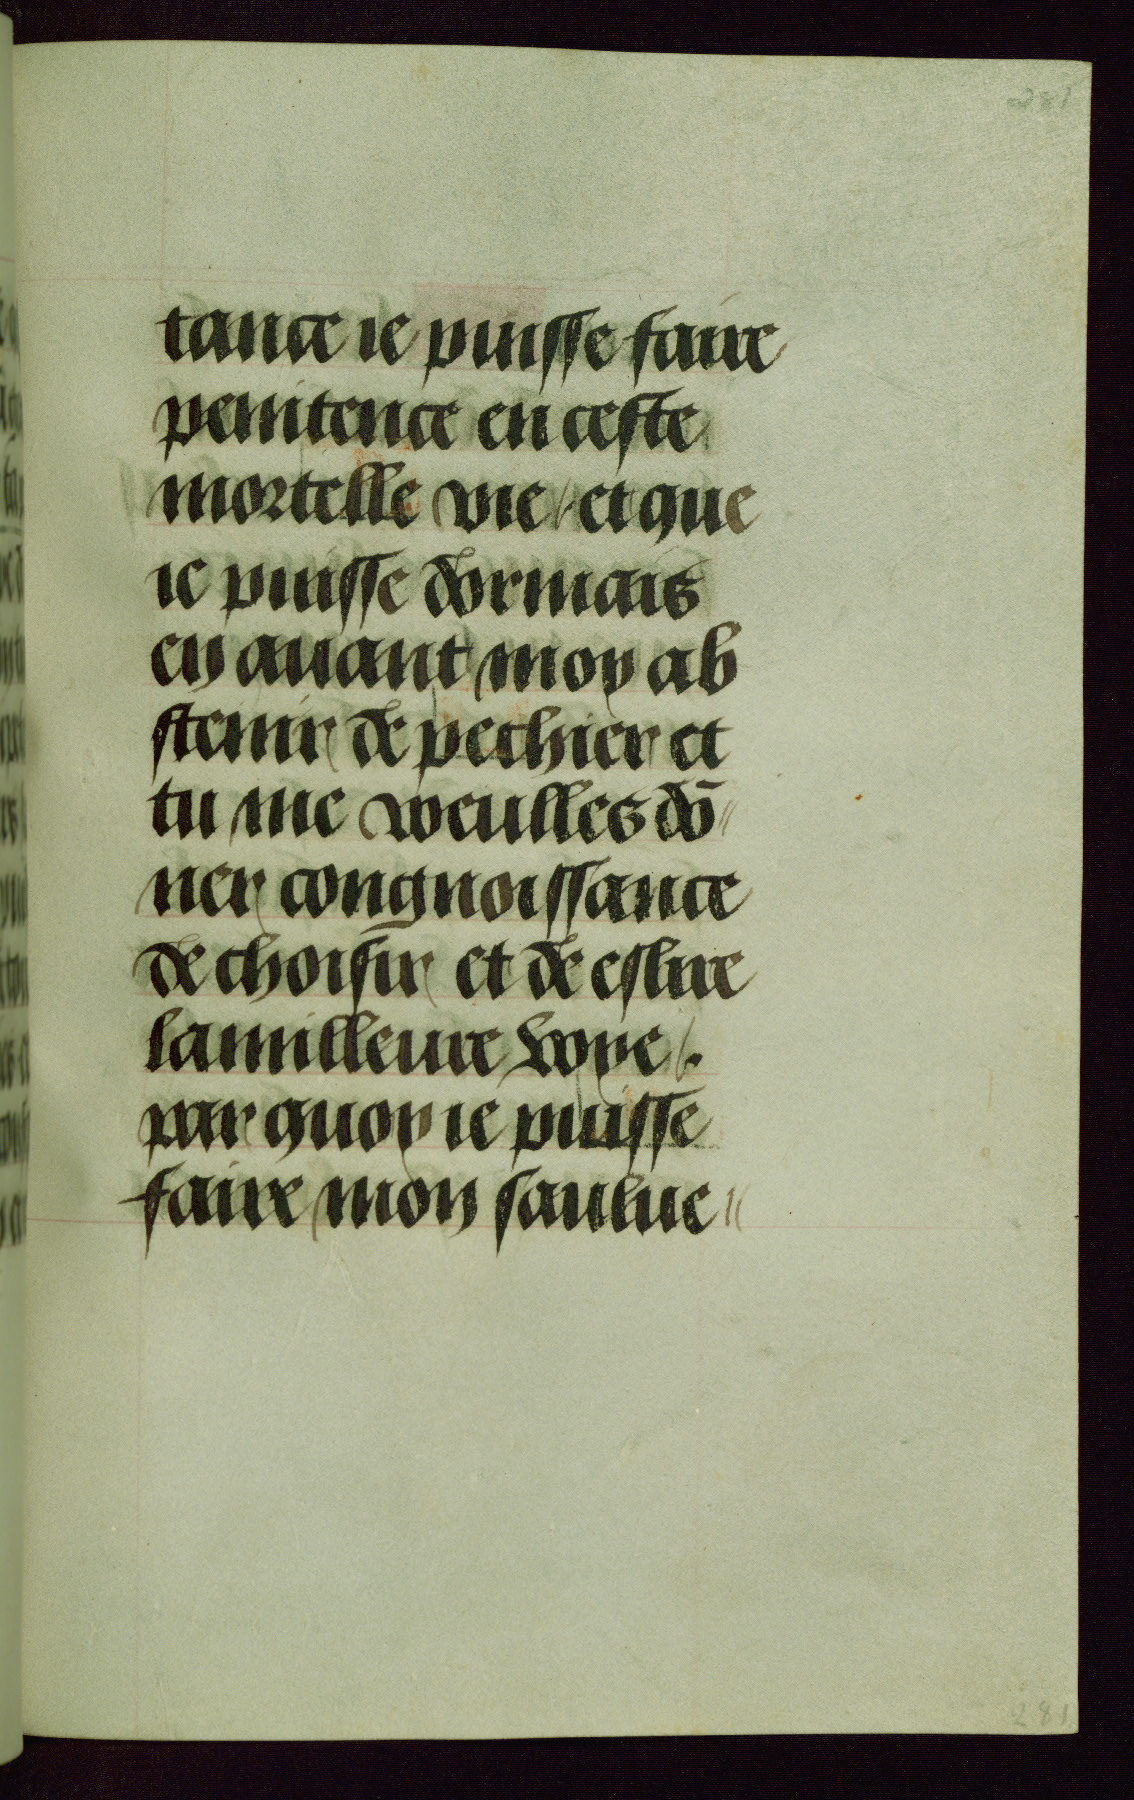 281
tance ie puisse faire
penitence en ceste
mortelle vie / et que
ie puisse dormais
en auant moy ab
stenir de pechier et
tu me weulles dō
ner congnoissance
de choisir et de eslire
la milleure voye /.
par quoy ie puisse
faire mon saulue
281